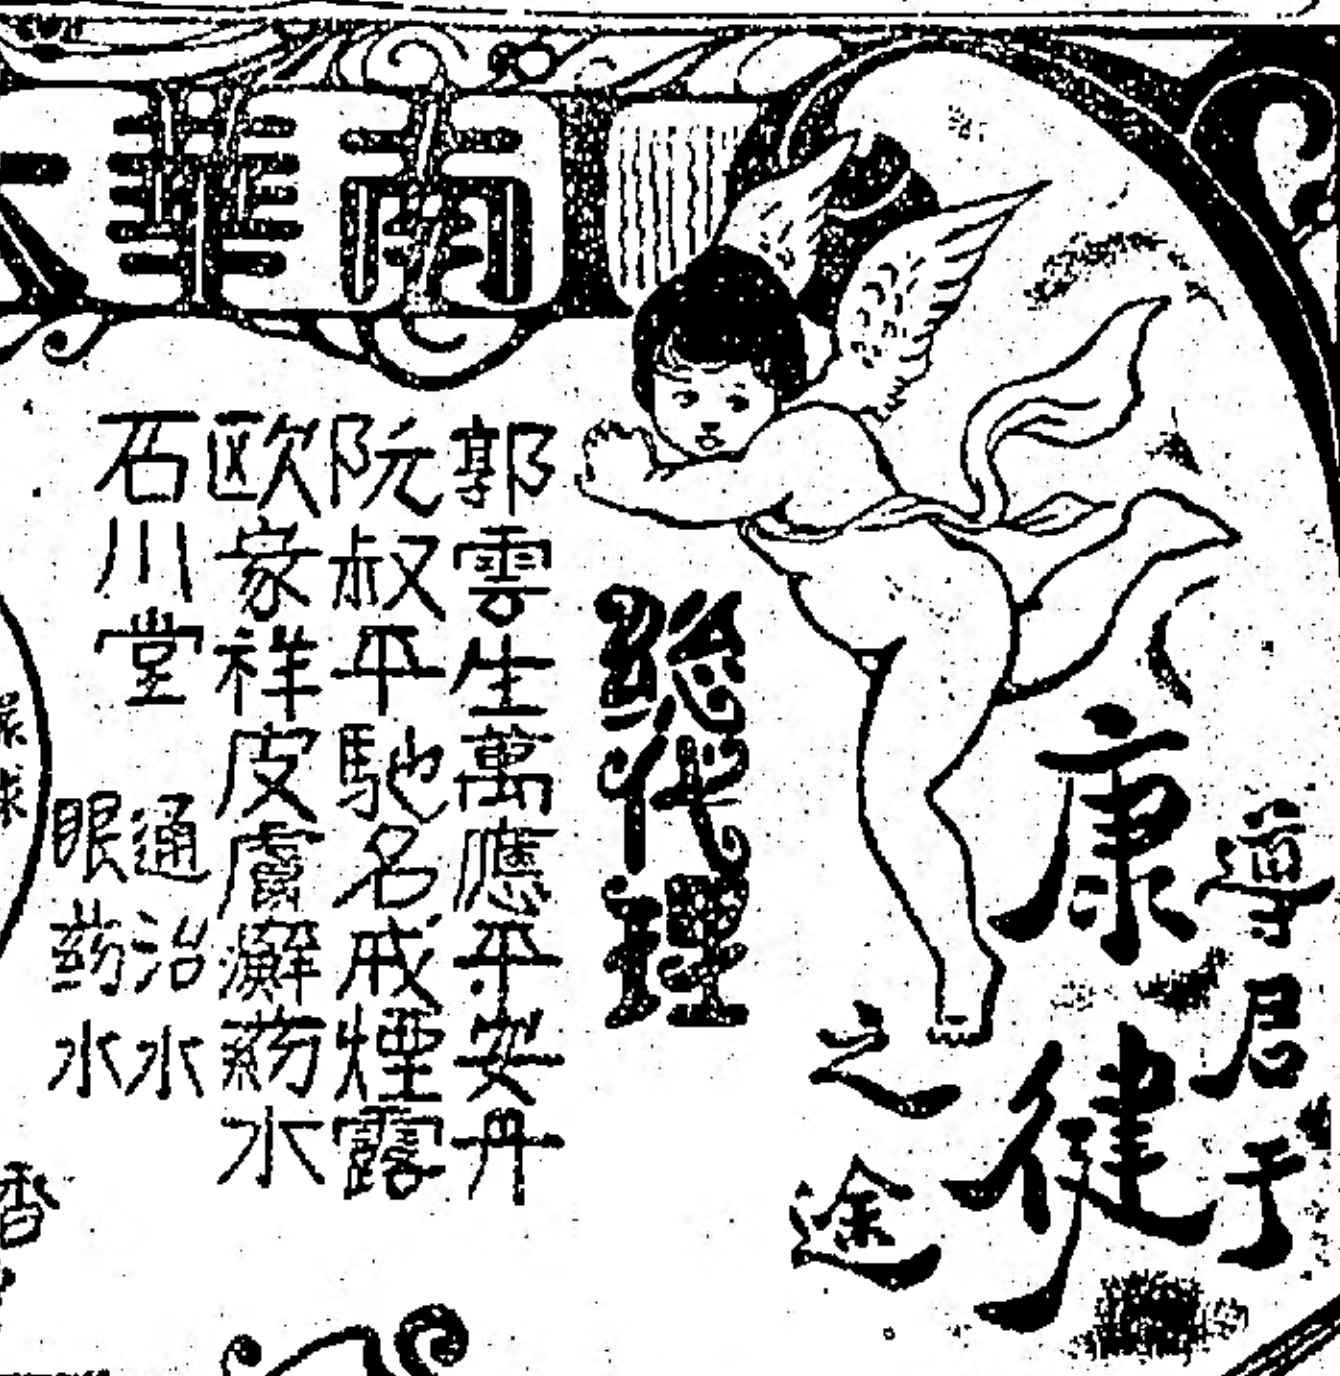 南華大
導君于
康健
之途
総代理
郭雲生萬應平安丹
阮叔平馳名戒煙露
欧家祥皮膚癬药水
石川堂
通治水
眼药水
香